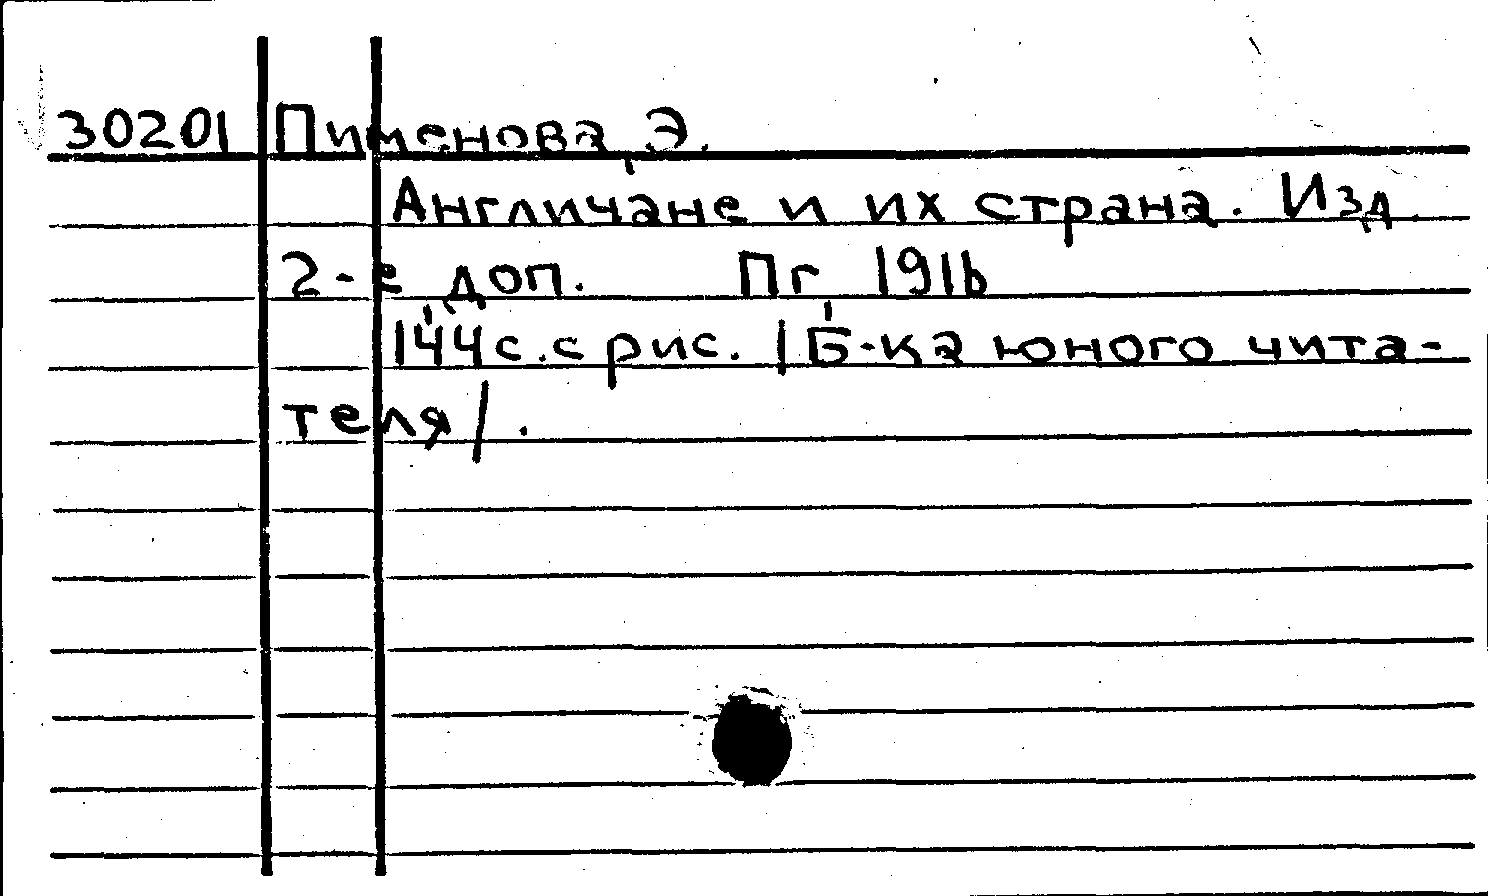 30201 Пименова, Э.
Англичане и их страна. Изд.
2-е, доп. Пг, 1916
144 с. с рис. /Б-ка юного чита-
теля/.